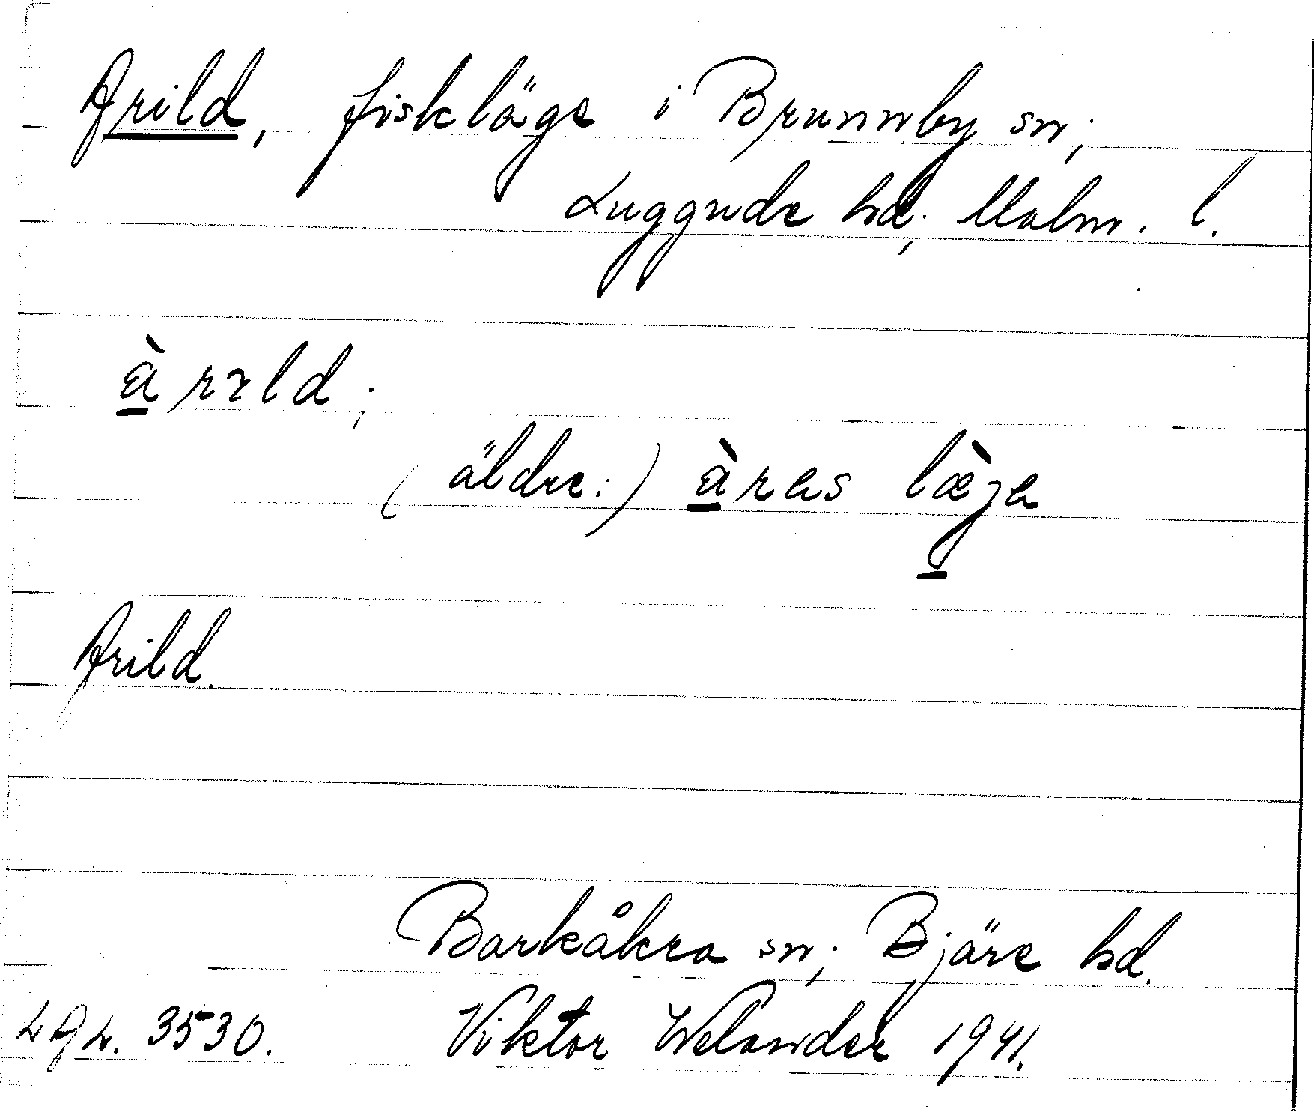 Arild, fiskläge i Brunnby sn;
Luggude hd; Malm. l.
àrəld;
(äldre:) àras læ̀ja
Arild.
Barkåkra sn; Bjäre hd.
Viktor Welander 1941.
3530.